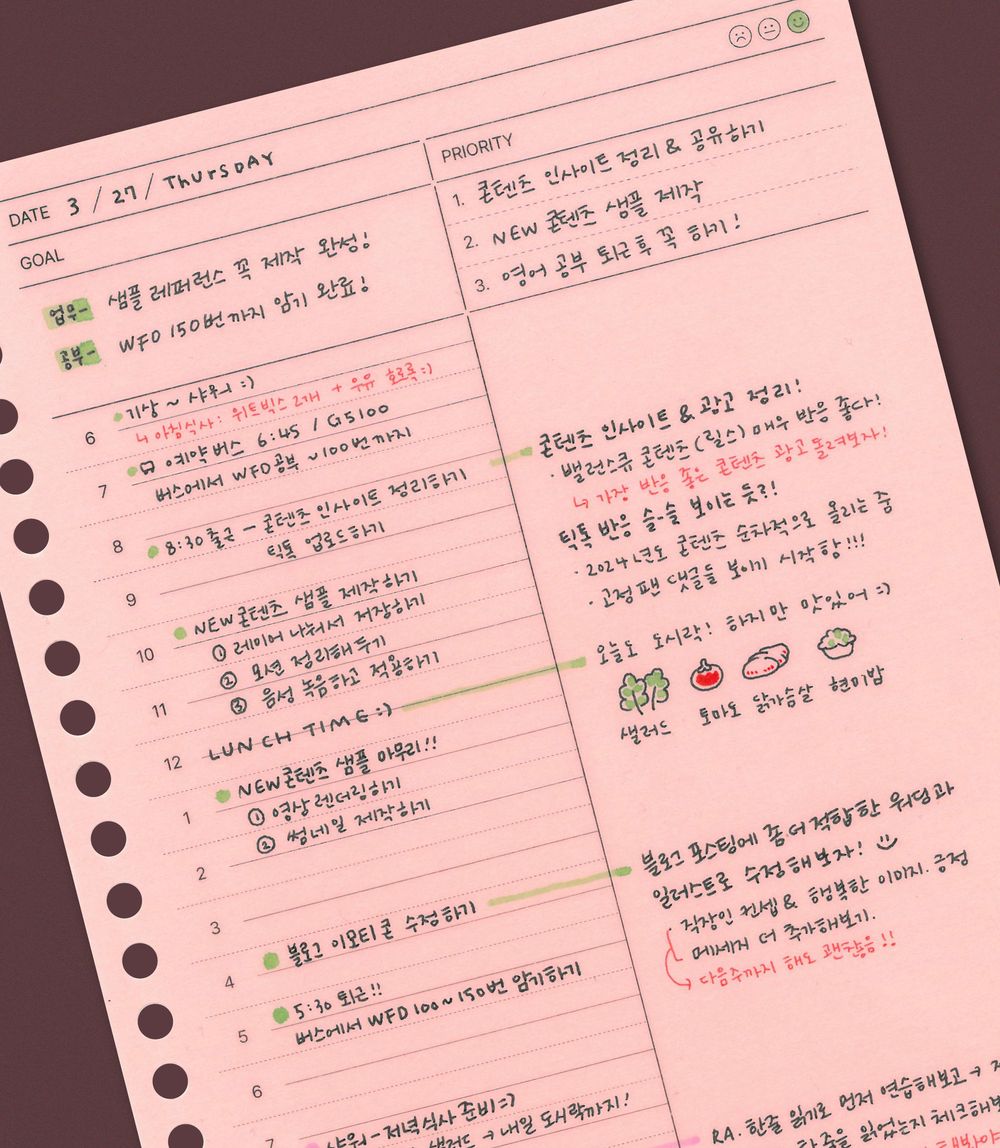 DATE 3 / 27 / ThURSDAY
GOAL
업무- 샘플 레퍼런스 꼭 제작 완성!
공부- WFD 150번까지 암기 완료!
PRIORITY
1. 콘텐츠 인사이트 정리 & 공유하기
2. NEW 콘텐츠 샘플 제작
3. 영어 공부 퇴근후 꼭 하기!
기상 ~ 샤워 :)
6 ↳ 아침식사: 위트빅스 2개 + 우유 호로록 :)
예약버스 6:45 / G5100
7 버스에서 WFD공부 ~100번까지
8 8:30 출근 - 콘텐츠 인사이트 정리하기
틱톡 업로드하기
9
NEW 콘텐츠 샘플 제작하기
10 ① 레이어 나눠서 저장하기
② 모션 정리해두기
11 ③ 음성 녹음하고 적용하기
12 LUNCH TIME :)
NEW 콘텐츠 샘플 마무리!!
1 ① 영상 렌더링하기
② 썸네일 제작하기
2
3
4 블로그 이모티콘 수정하기
5:30 퇴근!!
5 버스에서 WFD 100~150번 암기하기
6
7 샤워 - 저녁식사 준비 =)
샐러드 → 내일 도시락까지!
콘텐츠 인사이트 & 광고 정리!
· 밸런스큐 콘텐츠(릴스) 매우 반응 좋다!
↳ 가장 반응 좋은 콘텐츠 광고 돌려보자!
틱톡 반응 슬-슬 보이는 듯?!
· 2024년도 콘텐츠 순차적으로 올리는 중
· 고정팬 댓글들 보이기 시작함!!!
오늘도 도시락! 하지만 맛있어 :)
샐러드 토마토 닭가슴살 현미밥
블로그 포스팅에 좀 더 적합한 워딩과
일러스트로 수정해보자!
· 직장인 컨셉 & 행복한 이미지. 긍정
메세지 더 추가해보기.
→ 다음주까지 해도 괜찮음!!
RA. 한줄 읽기로 먼저 연습해보고 →
한줄을 읽었는지 체크해보